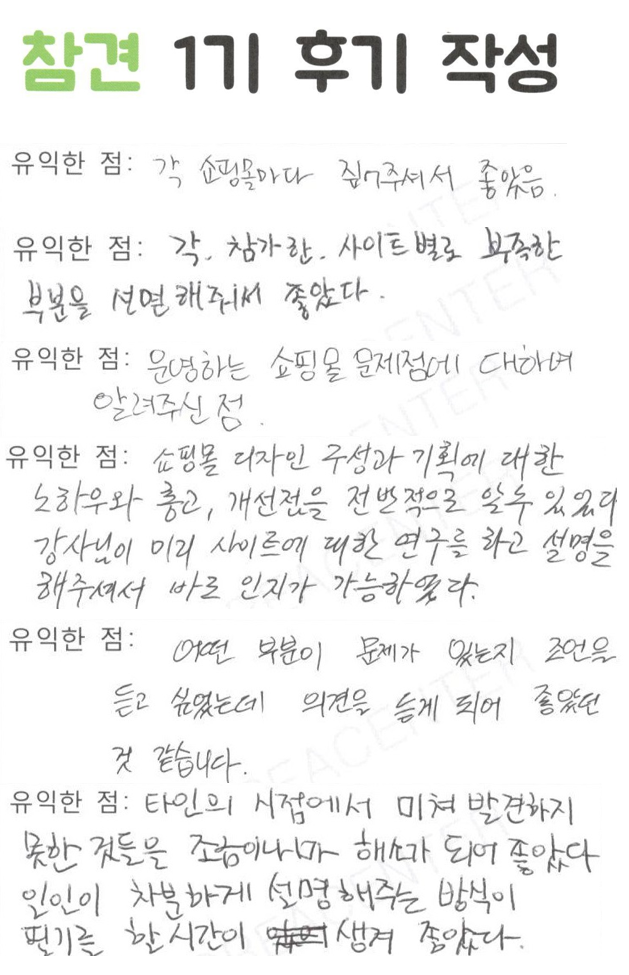 참견 1기 후기 작성
유익한 점: 각 쇼핑몰마다 짚어주셔서 좋았음.
유익한 점: 각. 참가한. 사이트별로 부족한
부분을 설명해주셔서 좋았다.
유익한 점: 운영하는 쇼핑몰 문제점에 대하여
알려주신 점.
유익한 점: 쇼핑몰 디자인 구성과 기획에 대한
노하우와 충고, 개선점을 전반적으로 알 수 있었다
강사님이 미리 사이트에 대한 연구를 하고 설명을
해주셔서 바로 인지가 가능하였다.
유익한 점: 어떤 부분이 문제가 있는지 조언을
듣고 싶었는데 의견을 듣게 되어 좋았던
것 같습니다.
유익한 점: 타인의 시점에서 미쳐 발견하지
못한 것들을 조금이나마 해소가 되어 좋았다
일인이 차분하게 설명해주는 방식이
필기를 할 시간이 생겨 좋았다.